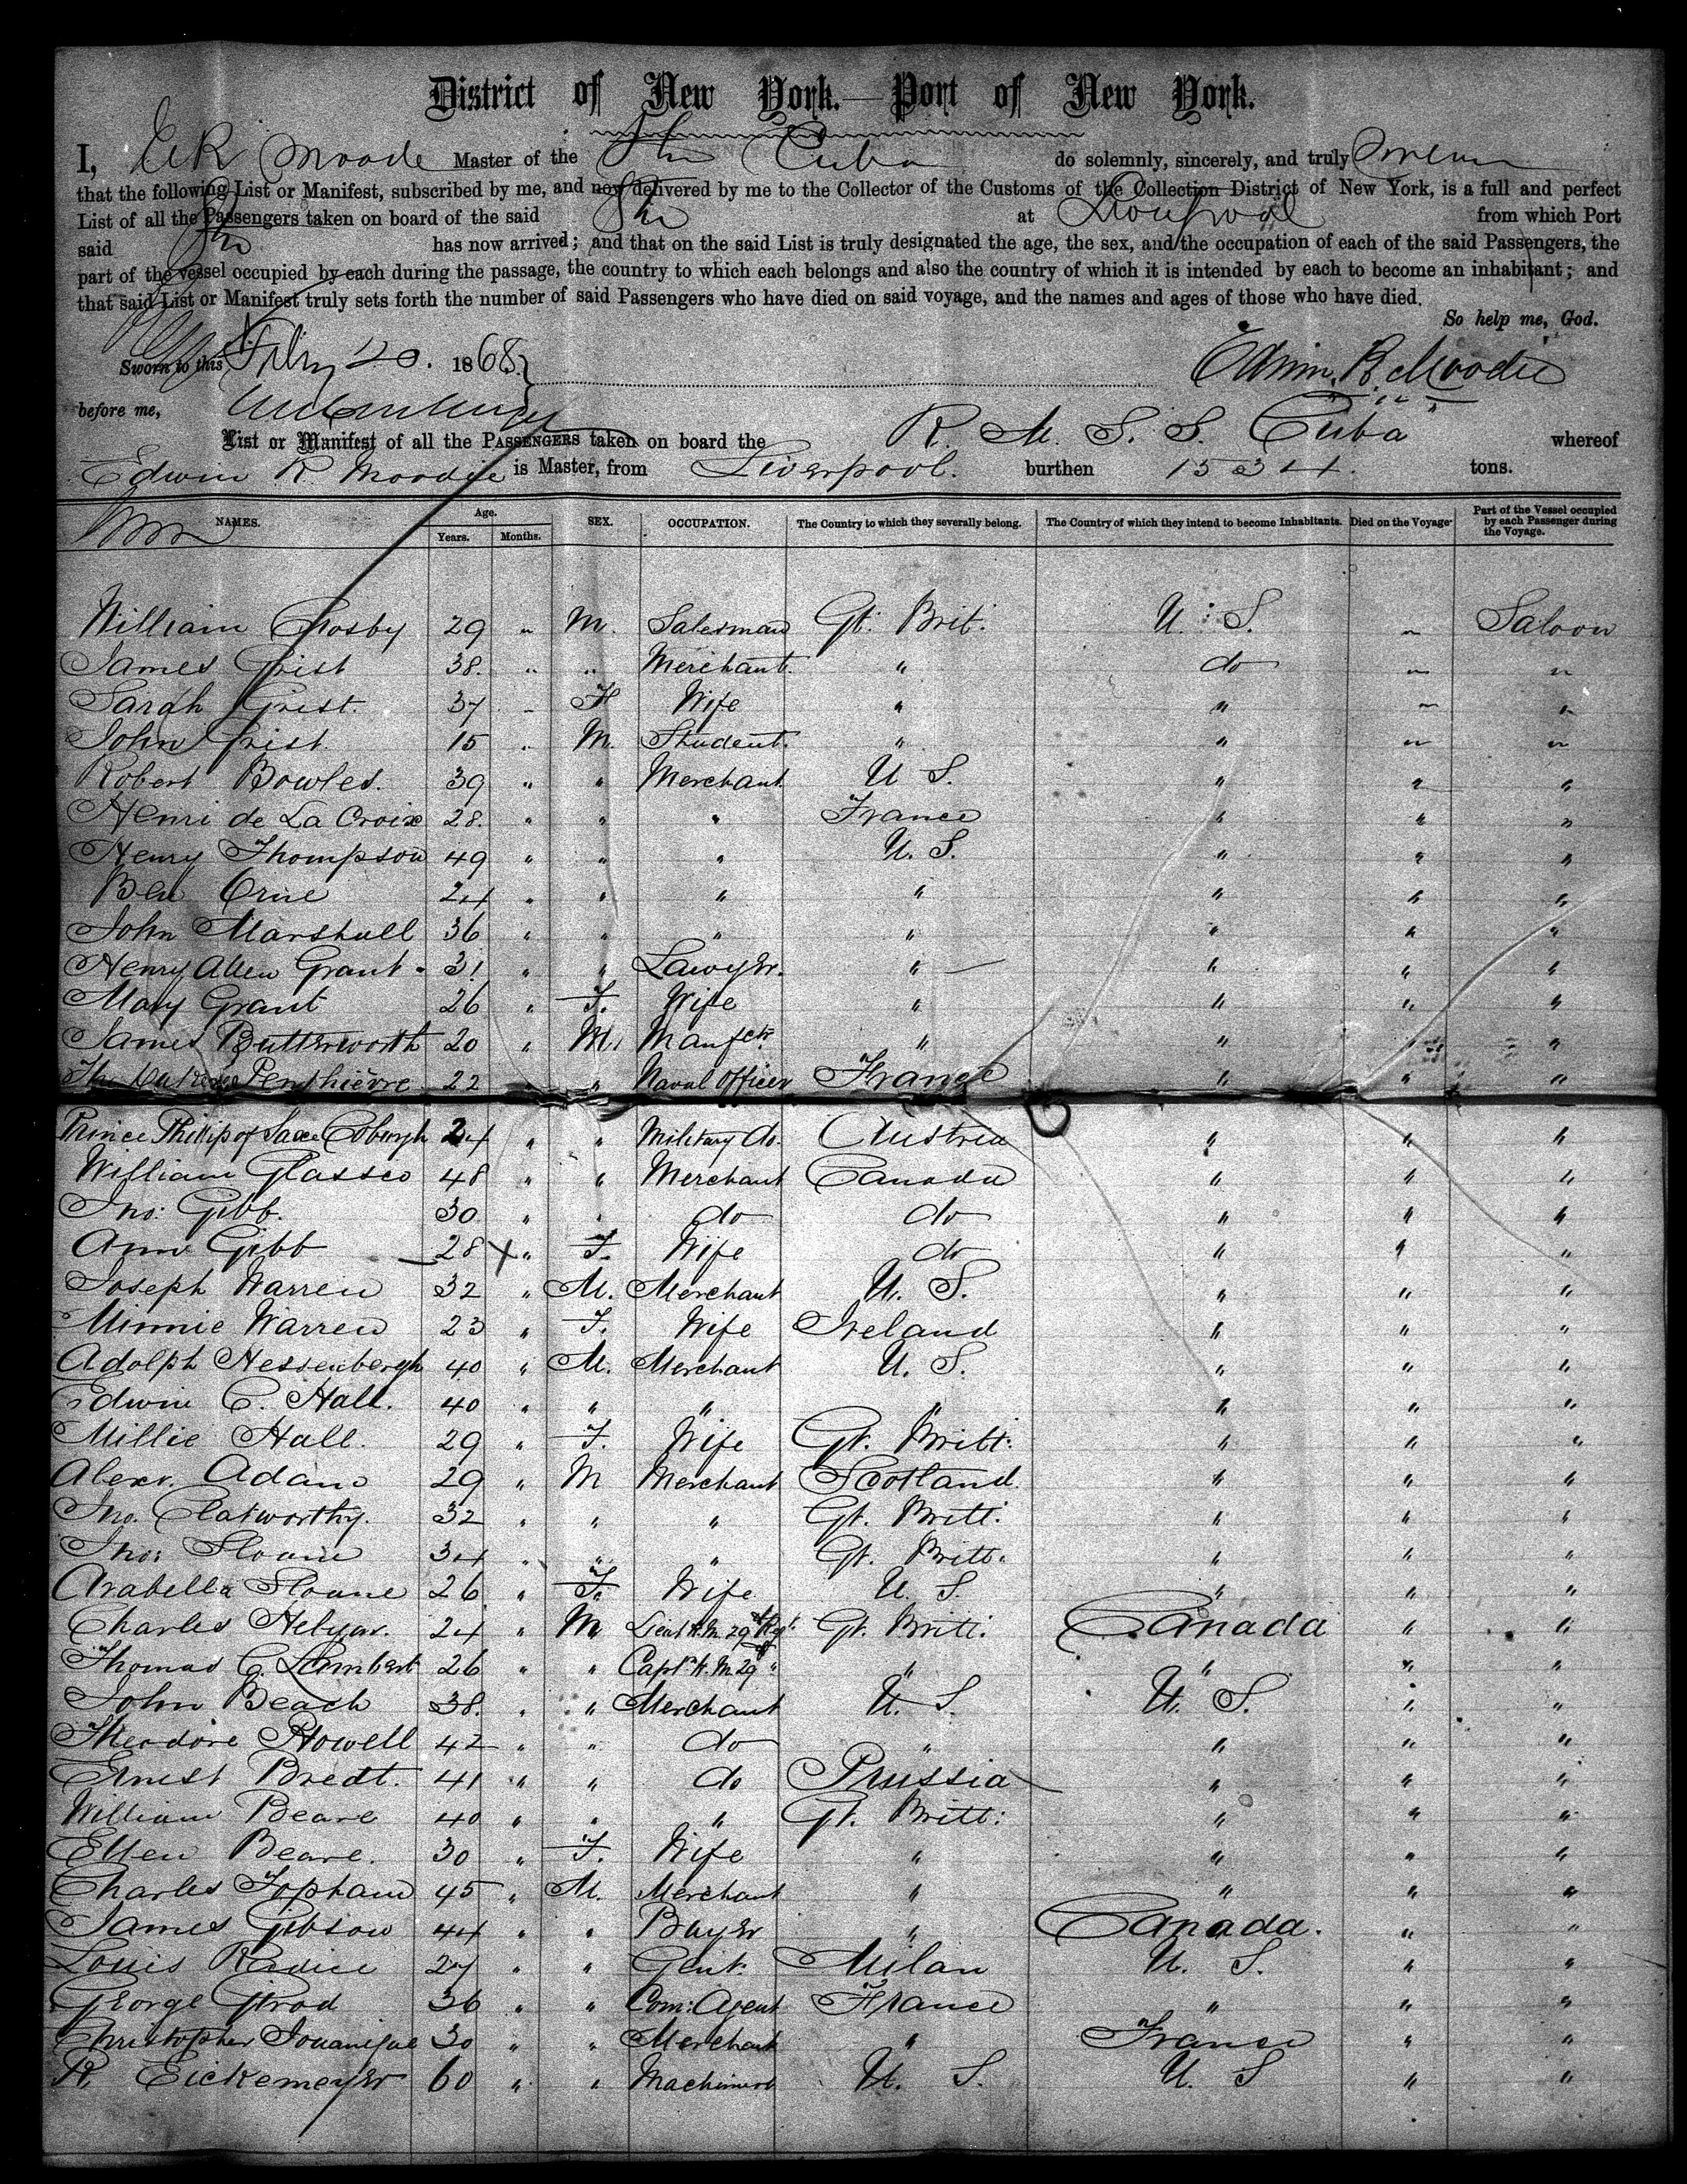 District of New York.—Port of New York.
I, E R Moodie Master of the Str Cuba do solemnly, sincerely, and truly swear
that the following List or Manifest, subscribed by me, and now delivered by me to the Collector of the Customs of the Collection District of New York, is a full and perfect
List of all the Passengers taken on board of the said Str at Liverpool from which Port
said Str has now arrived; and that on the said List is truly designated the age, the sex, and the occupation of each of the said Passengers, the
part of the vessel occupied by each during the passage, the country to which each belongs and also the country of which it is intended by each to become an inhabitant; and
that said List or Manifest truly sets forth the number of said Passengers who have died on said voyage, and the names and ages of those who have died.
So help me, God.
Sworn to this Feby 20. 1868. Edwin. R. Moodie
before me,
List or Manifest of all the PASSENGERS taken on board the R. M. S. S. Cuba whereof
Edwin R. Moodie is Master, from Liverpool. burthen 1534. tons.
NAMES. Age. Years. Months. SEX. OCCUPATION. The Country to which they severally belong. The Country of which they intend to become Inhabitants. Died on the Voyage Part of the Vessel occupied by each Passenger during the Voyage.
William Crosby 29 " M. Salesman Gt. Brit. U. S. " Saloon
James Grist 38. " " Merchant. " do " "
Sarah Grist. 37 " F Wife " " " "
John Grist. 15 " M. Student. " " " "
Robert Bowles. 39 " " Merchant U S. " " "
Henri de La Croix 28. " " " France " " "
Henry Thompson 49 " " " U. S. " " "
Ben Orne 24 " " " " " " "
John Marshall 36 " " " " " " "
Henry Allen Grant. 31 " " Lawyer. " " " "
Mary Grant 26 " F. Wife " " " "
James Butterworth 20 " M. Manfctr. " " " "
Penthièvre 22 " " Naval Officer France " " "
Prince Philip of Saxe Coburgh 24 " " Military do. Austria " " "
William Glassco 48 " " Merchant Canada " " "
Jno: Gibb. 30 " " do do " " "
Ann Gibb 28 X " F. Wife do " " "
Joseph Warren 32 " M. Merchant U. S. " " "
Minnie Warren 23 " F. Wife Ireland " " "
Adolph Hessenbergh 40 " M. Merchant U. S. " " "
Edwin C. Hall. 40 " " " " " " "
Millie Hall. 29 " F. Wife Gt. Britt: " " "
Alexr. Adam 29 " M Merchant Scotland. " " "
Jno. Clatworthy. 32 " " " Gt. Britt: " " "
Jno: Sloane 34 " " " Gt. Britt: " " "
Arabella Sloane 26 " F. Wife U. S. " " "
Charles Helyar. 24 " M Lieut H.M. 29th Regt. Gt. Britt: Canada " "
Thomas C. Lambert 26 " " Captn H.M. 29 " " " " "
John Beach 38. " " Merchant U. S. U. S. " "
Theodore Howell 42 " " do " " " "
Ernest Bredt. 41 " " do Prussia " " "
William Beare 40 " " " Gt. Britt: " " "
Ellen Beare. 30 " F. Wife " " " "
Charles Topham 45 " M. Merchant " " " "
James Gibson 44 " " Buyer " Canada. " "
Louis Radice 27 " " Gent. Milan U. S. " "
George Girod 36 " " Com: Agent France " " "
Christopher Jouanique 30 " " Merchant " France " "
R. Eickemeyer 60 " " Machinist U. S. U. S " "